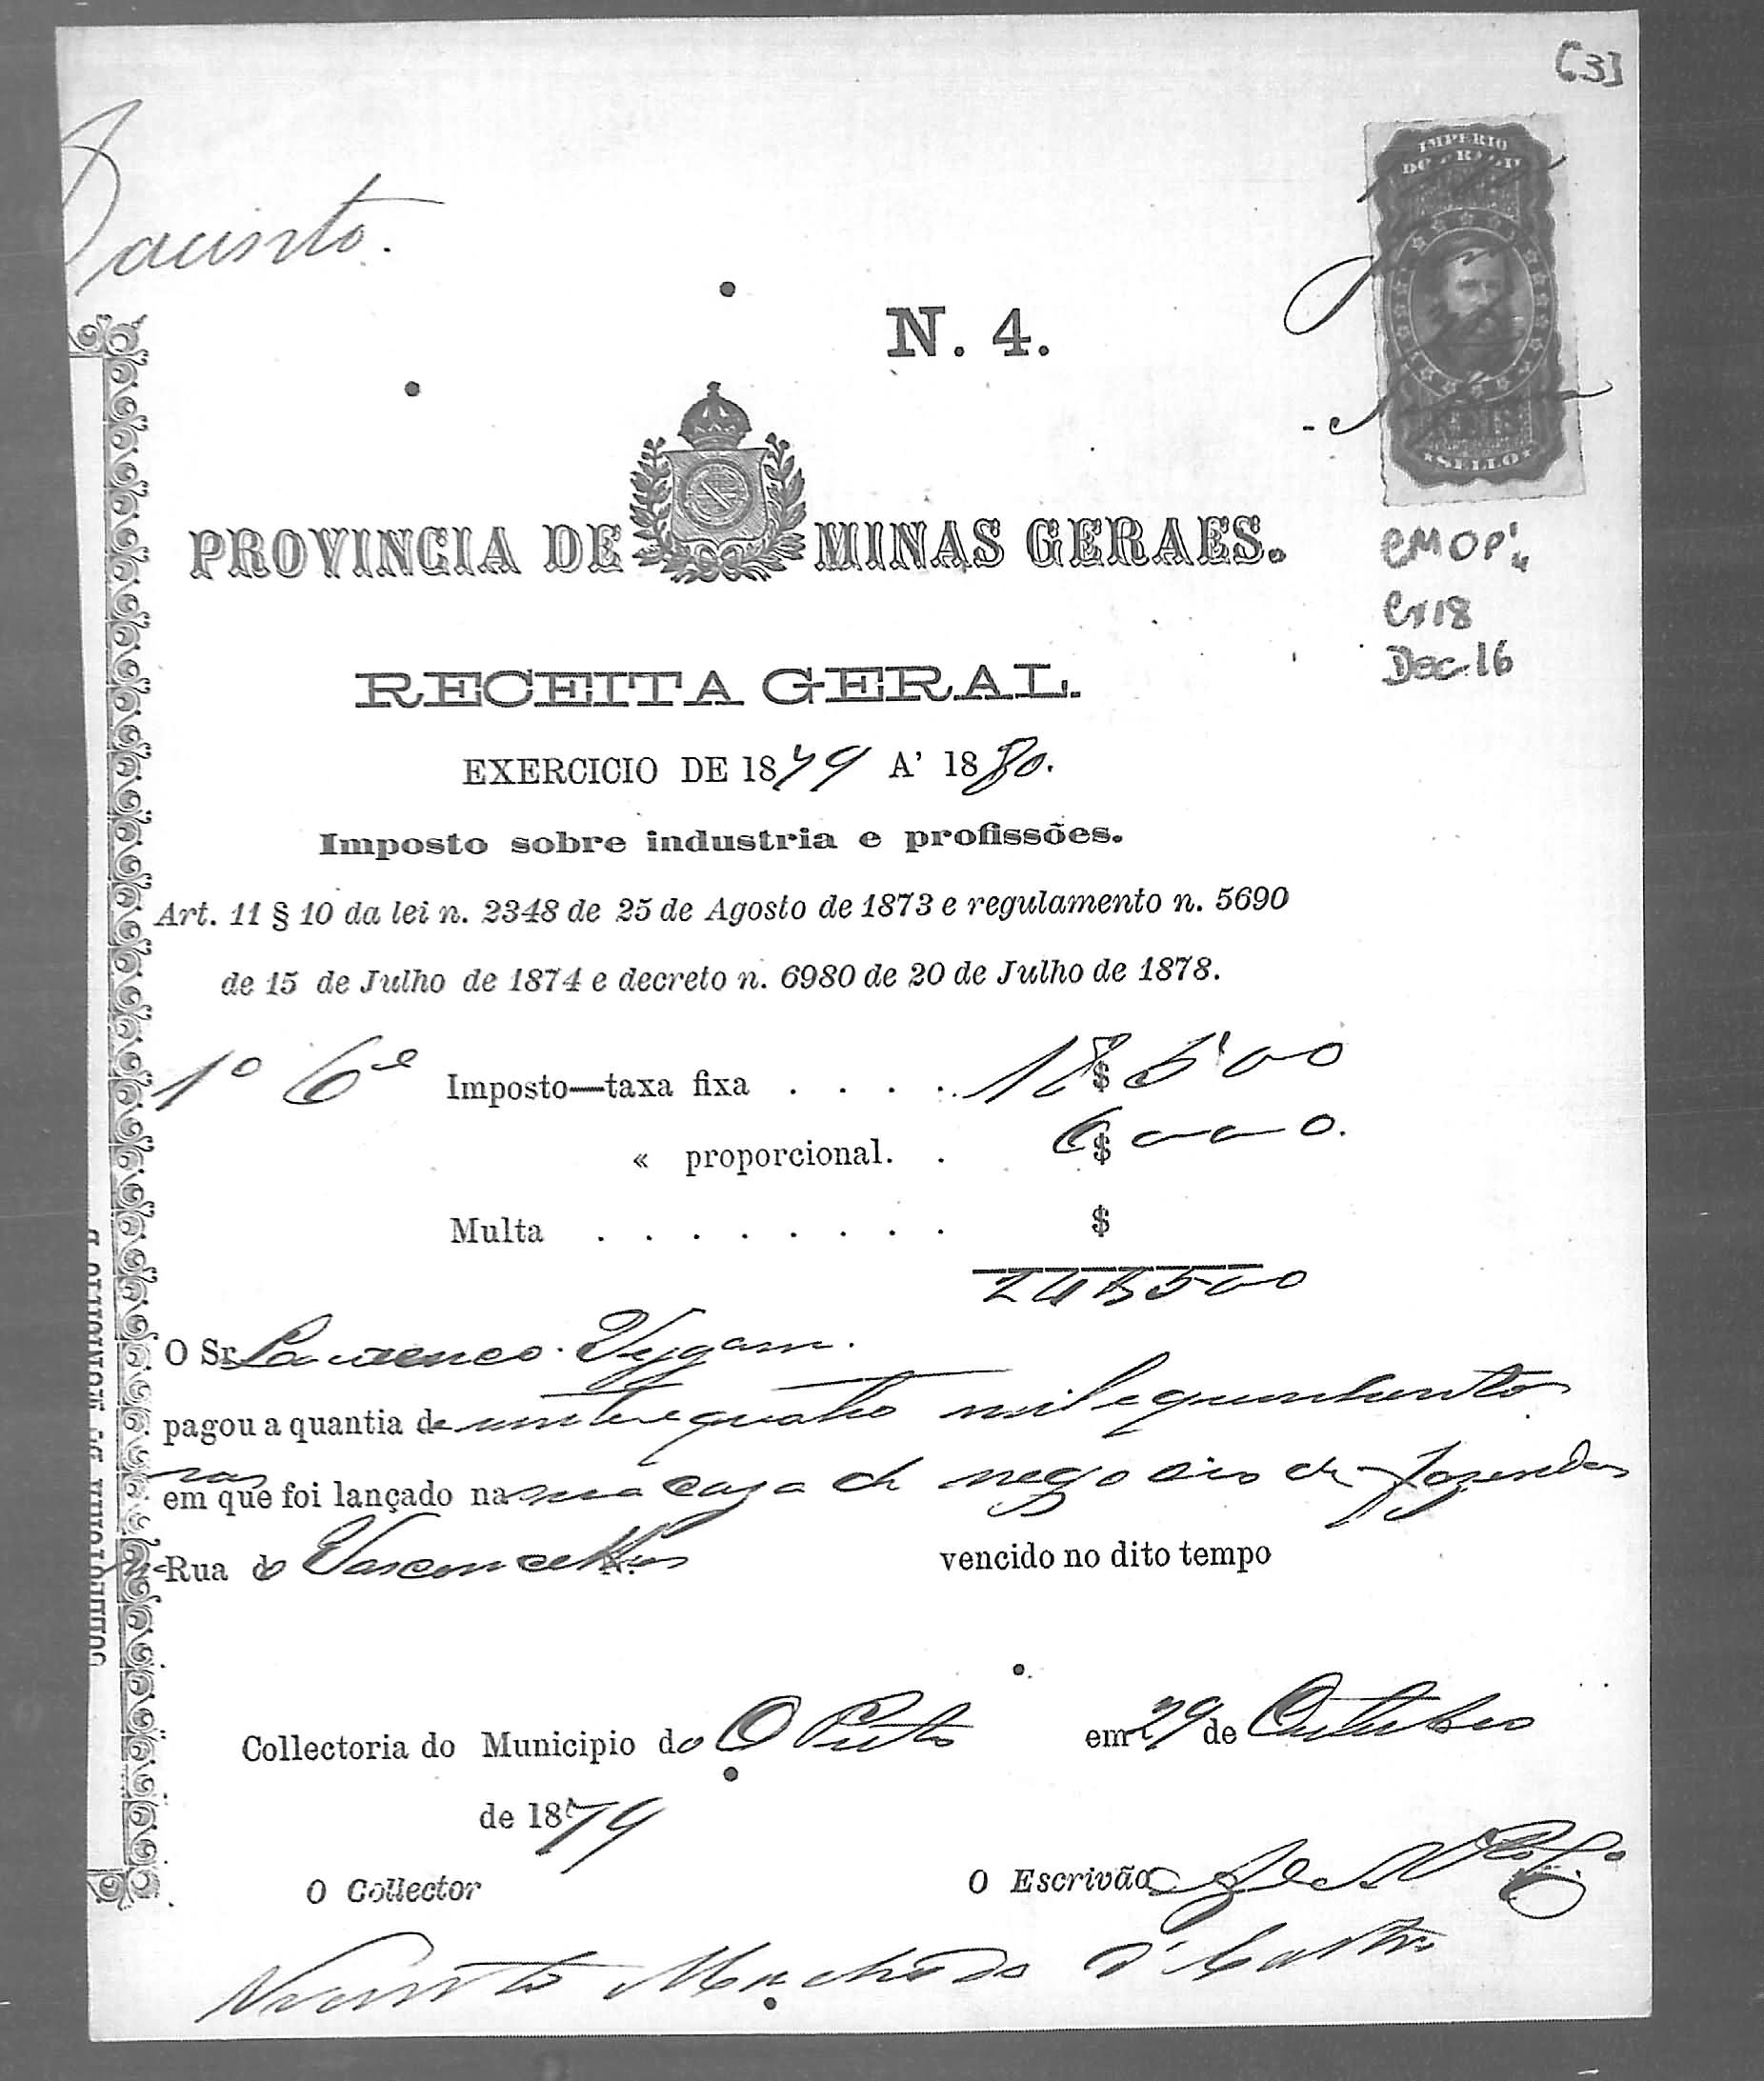 [3]
Jacinto.
N. 4.
IMPERIO
DO BRAZIL
REIS
SELLO
PROVINCIA DE MINAS GERAES.
CMOP
Cx18
Doc. 16
RECEITA GERAL.
EXERCICIO DE 1879 A' 1880.
Imposto sobre industria e profissões.
Art. 11 § 10 da lei n. 2348 de 25 de Agosto de 1873 e regulamento n. 5690
de 15 de Julho de 1874 e decreto n. 6980 de 20 de Julho de 1878.
1º 6e Imposto—taxa fixa . . . . 18$500
« proporcional. . 6$000.
Multa . . . . . . . . $
24$500
O Sr. Lourenco
pagou a quantia de vinte e quatro mil e quinhentos
ras
em que foi lançado na sua casa de negocio de fazendas
Rua do Vasconcellos vencido no dito tempo
Collectoria do Municipio do O Preto em 29 de Outubro
de 1879
O Collector O Escrivão
Machado d' Castro